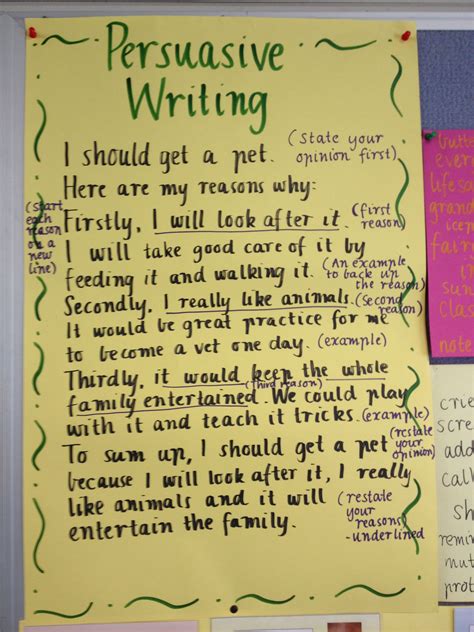 Persuasive
Writing
I should get a pet. (State your opinion first)
Here are my reasons why:
(start each reason on a new line)
Firstly, I will look after it. (first reason)
I will take good care of it by
feeding it and walking it. (An example to back up the reason)
Secondly, I really like animals. (Second reason)
It would be great practice for me
to become a vet one day. (example)
Thirdly, it would keep the whole
family entertained. (Third reason) We could play
with it and teach it tricks. (example)
To sum up, I should get a pet (restate your opinion)
because I will look after it, I really
like animals and it will (restate your reasons) -underlined
entertain the family.
butte
ever
life
gran
icen
fair
in
sun
clas
note
crie
scre
add
call
Sh
remin
nut
prot